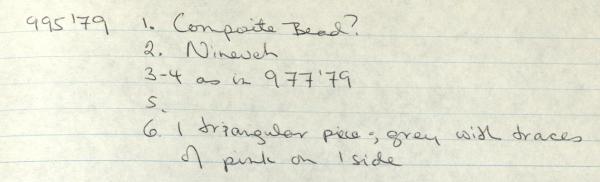 995'79 1. Composite Bead?
2. Nineveh
3-4 as in 977'79
5.
6. 1 triangular piece; grey with traces
of pink on 1 side